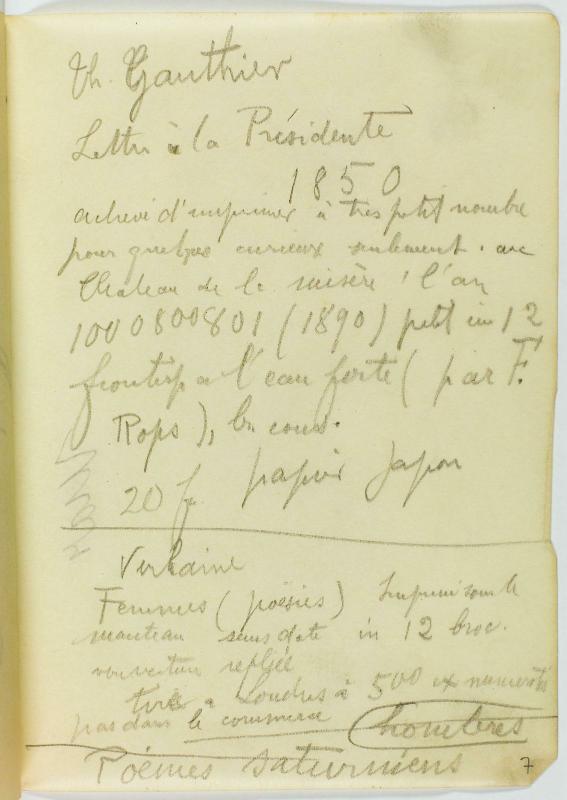 Th. Gauthier
Lettre à la Présidente
1850
achevé d'imprimer à très petit nombre
pour quelques curieux seulement. au
Château de la misère, l'an
1000800801 (1890) petit in 12
frontisp a l'eau forte (par F.
Rops), br couv.
20 f papier Japon
Verlaine
Femmes (poésies) Imprimé sous le
manteau sans date in 12 broc.
couverture repliée
tiré a Londres à 500 ex numerotés
pas dans le commerce hombres
Poémes saturniens
7